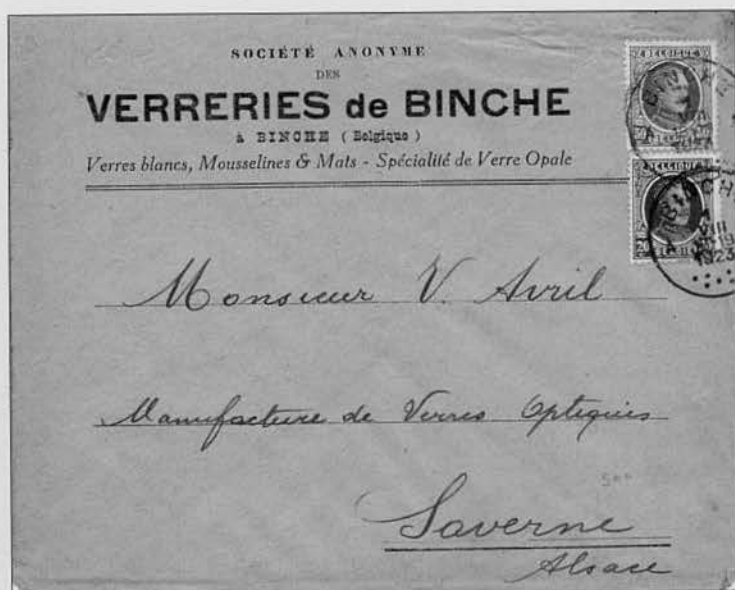 SOCIÉTÉ ANONYME
DES
VERRERIES de BINCHE
à BINCHE (Belgique)
Verres blancs, Mousselines & Mats - Spécialité de Verre Opale
BELGIQUE
BINCHE
BELGIQUE
BINCHE
1
VIII
1923
Monsieur V. Avril
Manufacture de Verres Optiques
Saverne
Alsace